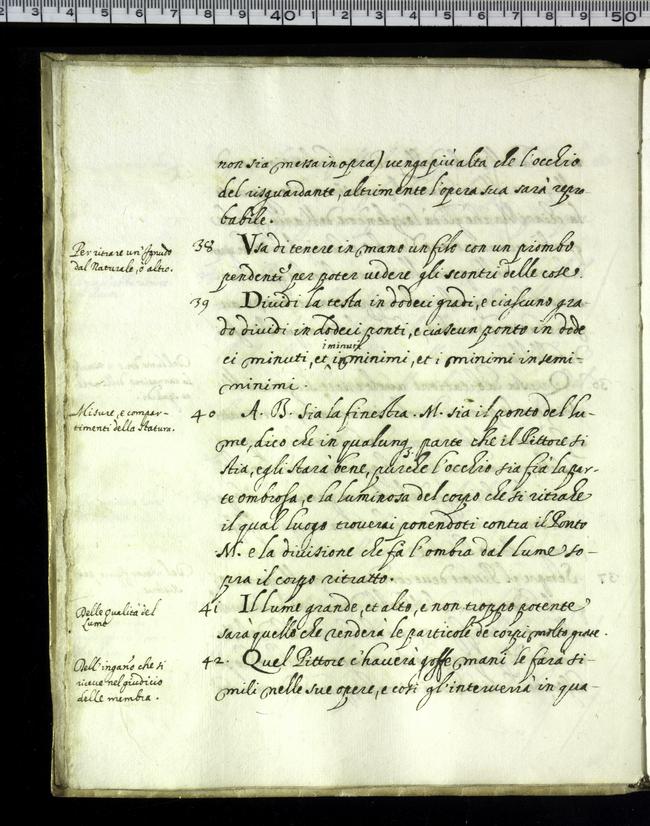 non sia messa in opra) venga più alta che l'occhio
del risguardante, altrimente l'opera sua sarà repro-
babile.
Per ritrare un'Ignudo
dal Naturale, ò altro.
38 Vsa di tenere in mano un filo con un piombo
pendente per poter vedere gli scontri delle cose.
39 Dividi la testa in dodeci gradi, e ciascuno gra-
do dividi in dodeci ponti, e ciascun ponto in dode
ci minuti, et i minuti in minimi, et i minimi in semi-
minimi.
Misure, e compar-
timenti della statura.
40 A. B. sia la finestra. M. sia il ponto del lu-
me, dico che in qualunq3 parte che il Pittore si
stia, egli starà bene, purche l'occhio sia frà la par-
te ombrosa, e la luminosa del corpo che si ritrahe
il qual luogo troverai ponendoti contra il Ponto
M. e la divisione che fà l'ombra dal lume so-
pra il corpo ritratto.
Delle qualità del
Lume
41 Il lume grande, et alto, e non troppo potente
sarà quello che renderà le particole de corpi molto grate.
Dell'inganno che si
riceve nel giudicio
delle membra.
42. Quel Pittore c'haverà goffe mani le farà si-
mili nelle sue opere, e così gl'interverrà in qua-